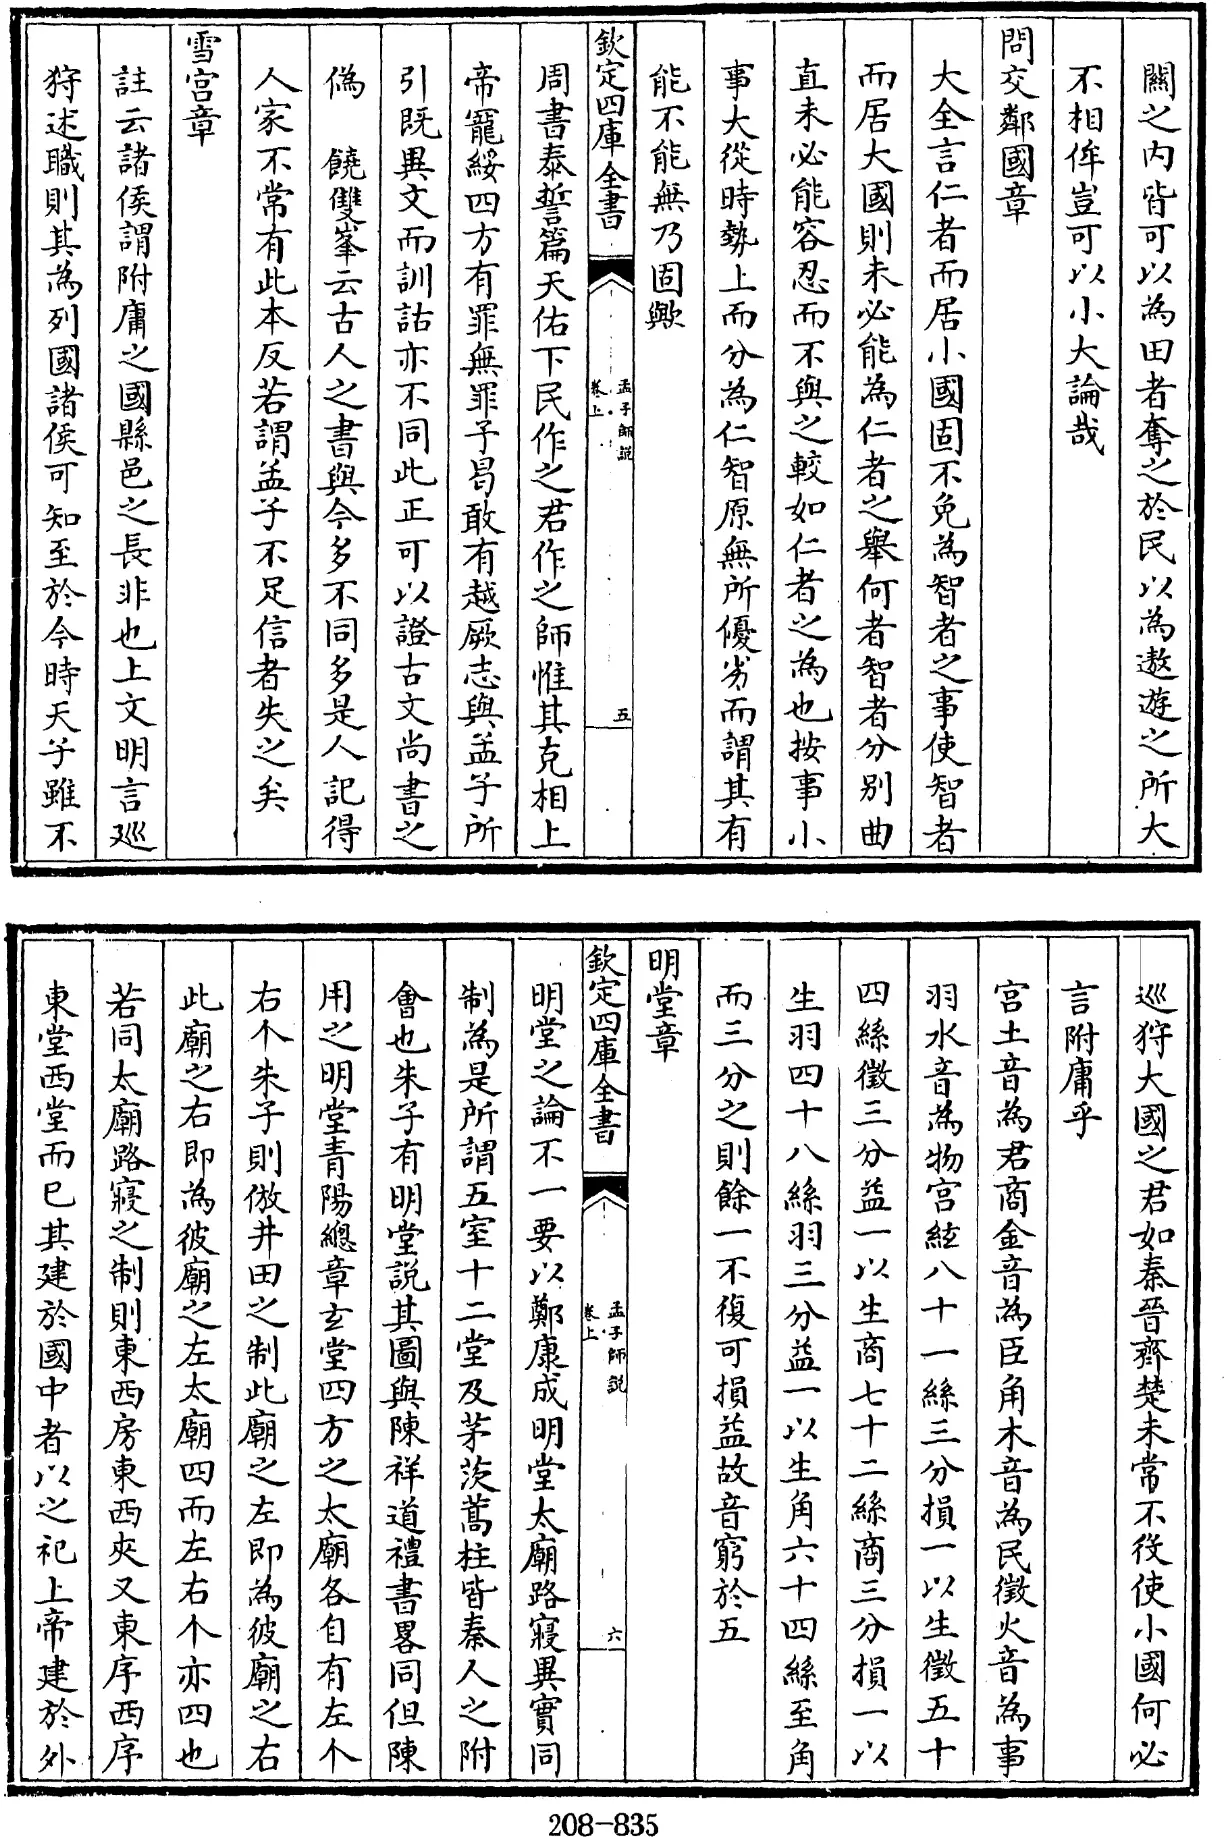 關之内皆可以為田者奪之於民以為遨遊之所大
不相侔豈可以小大論哉
問交鄰國章
大全言仁者而居小國固不免為智者之事使智者
而居大國則未必能為仁者之舉何者智者分別曲
直未必能容忍而不與之較如仁者之為也按事小
事大從時勢上而分為仁智原無所優劣而謂其有
能不能無乃固歟
欽定四庫全書
孟子師說
卷上
五
周書泰誓篇天佑下民作之君作之師惟其克相上
帝寵綏四方有罪無罪予曷敢有越厥志與孟子所
引既異文而訓詁亦不同此正可以證古文尚書之
偽 饒雙峯云古人之書與今多不同多是人記得
人家不常有此本反若謂孟子不足信者失之矣
雪宫章
註云諸侯謂附庸之國縣邑之長非也上文明言巡
狩述職則其為列國諸侯可知至於今時天子雖不
巡狩大國之君如秦晉齊楚未常不役使小國何必
言附庸乎
宫土音為君商金音為臣角木音為民徵火音為事
羽水音為物宫絃八十一絲三分損一以生徵五十
四絲徵三分益一以生商七十二絲商三分損一以
生羽四十八絲羽三分益一以生角六十四絲至角
而三分之則餘一不復可損益故音窮於五
明堂章
欽定四庫全書
孟子師說
卷上
六
明堂之論不一要以鄭康成明堂太廟路寢異實同
制為是所謂五室十二堂及茅茨蒿柱皆秦人之附
會也朱子有明堂説其圖與陳祥道禮書畧同但陳
用之明堂青陽總章玄堂四方之太廟各自有左个
右个朱子則倣井田之制此廟之左即為彼廟之右
此廟之右即為彼廟之左太廟四而左右个亦四也
若同太廟路寢之制則東西房東西夾又東序西序
東堂西堂而已其建於國中者以之祀上帝建於外
208-835